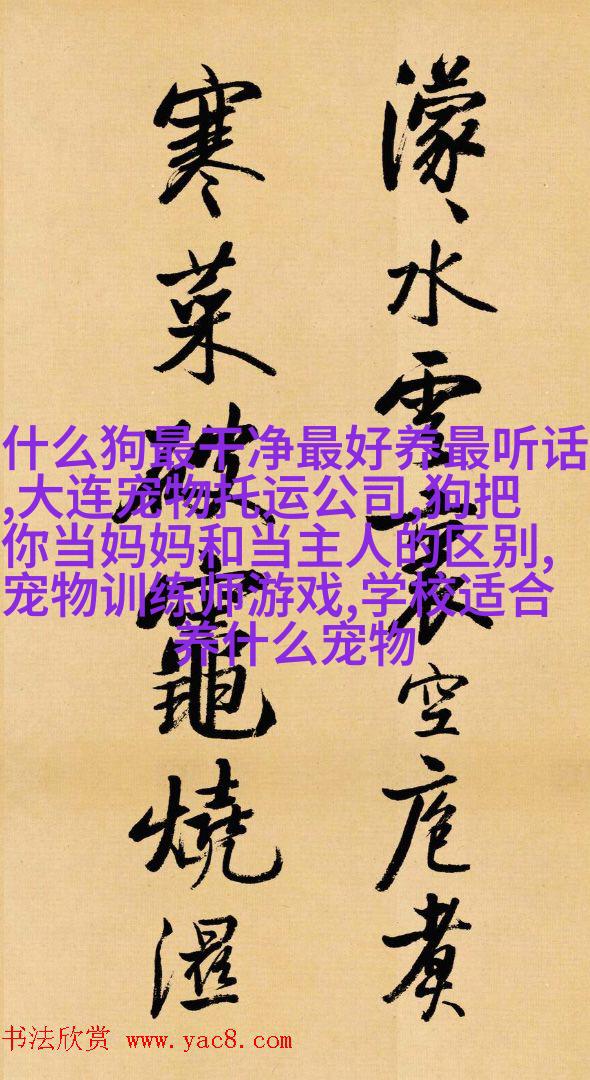 濛〻水雲裏空庖煮
寒菜破竈燒濕
什么狗最干净最好养最听话
,大连宠物托运公司,狗把
你当妈妈和当主人的区别,
宠物训练师游戏,学校适合
养什么宠物
书法欣赏 www.yac8.com